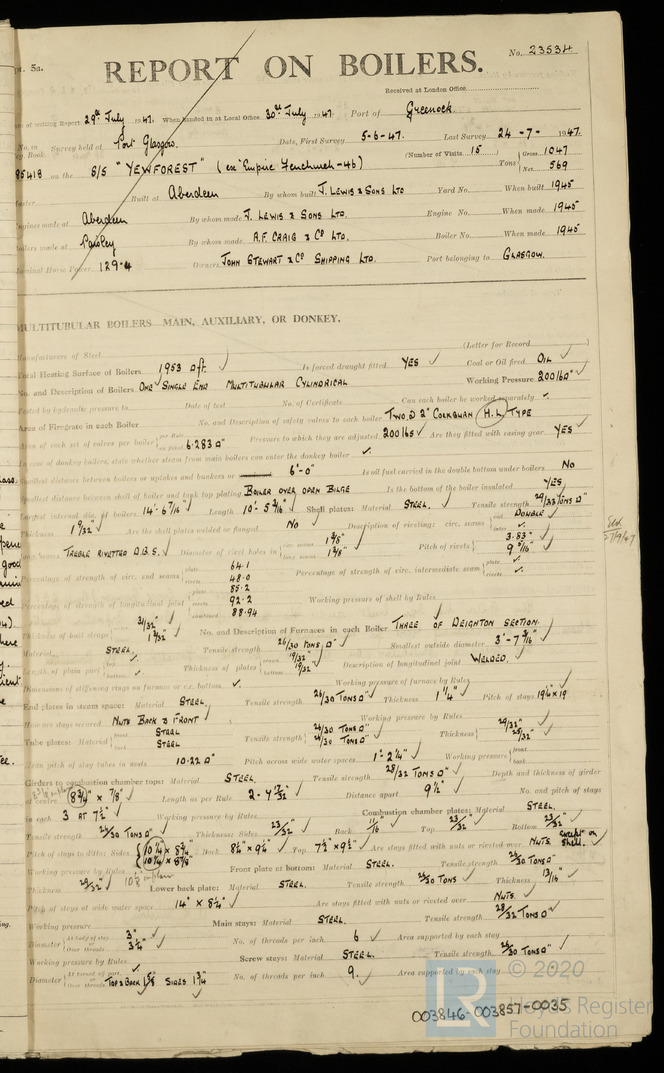 pt. 5a.
No. 23534
REPORT ON BOILERS.
Received at London Office
of writing Report 29th July 1947. When handed in at Local Office 30th July 1947. Port of Greenock.
No. in Survey held at Port Glasgow. Date, First Survey 5-6-47. Last Survey 24-7-1947.
Book. (Number of Visits 15) Gross 1047
85418 on the S/S "YEWFOREST" (ex "Empire Fenchurch-46) Tons Net 569
Built at Aberdeen By whom built J. LEWIS & SONS LTD Yard No. When built 1945
Engines made at Aberdeen By whom made J. LEWIS & SONS LTD. Engine No. When made 1945
Boilers made at Paisley By whom made A.F. CRAIG & Co LTD. Boiler No. When made 1945
Nominal Horse Power 129.4 Owners JOHN STEWART & Co SHIPPING LTD. Port belonging to GLASGOW.
MULTITUBULAR BOILERS MAIN, AUXILIARY, OR DONKEY.
Manufacturers of Steel (Letter for Record )
Total Heating Surface of Boilers 1953 sq ft. ✓ Is forced draught fitted YES ✓ Coal or Oil fired OIL ✓
No. and Description of Boilers ONE SINGLE END MULTITUBULAR CYLINDRICAL Working Pressure 200 lb □" ✓
Tested by hydraulic pressure to Date of test No. of Certificate Can each boiler be worked separately ✓
Area of Firegrate in each Boiler No. and Description of safety valves to each boiler TWO @ 2" COCKBURN H.L. TYPE
Area of each set of valves per boiler 6.283 □" Pressure to which they are adjusted 200 lbs ✓ Are they fitted with easing gear YES ✓
In case of donkey boilers, state whether steam from main boilers can enter the donkey boiler ✓
Smallest distance between boilers or uptakes and bunkers or 6'-0" Is oil fuel carried in the double bottom under boilers NO
Smallest distance between shell of boiler and tank top plating BOILER OVER OPEN BILGE Is the bottom of the boiler insulated YES ✓
Largest internal dia. of boilers 14'-6 7/16" ✓ Length 10'-5 3/16" ✓ Shell plates: Material STEEL. ✓ Tensile strength 29/33 TONS □"
Thickness 1 9/32" ✓ Are the shell plates welded or flanged NO ✓ Description of riveting: circ. seams end DOUBLE ✓
inter ✓
long. seams TREBLE RIVETTED D.B.S. ✓ Diameter of rivet holes in circ. seams 1 3/8" Pitch of rivets 3.83" ✓
long. seams 1 3/8" 9 5/16" ✓
Percentage of strength of circ. end seams plate 64.1 Percentage of strength of circ. intermediate seam plate ✓
rivets 48.0 rivets ✓
Percentage of strength of longitudinal joint plate 85.2 Working pressure of shell by Rules
rivets 92.2
combined 88.94
Thickness of butt straps 31/32" ✓
1 3/32" ✓ No. and Description of Furnaces in each Boiler THREE OF DEIGHTON SECTION.
Material STEEL. ✓ Tensile strength 26/30 TONS □" Smallest outside diameter 3'-7 3/16" ✓
Length of plain part Thickness of plates crown 19/32" ✓ Description of longitudinal joint WELDED. ✓
bottom 19/32" ✓
Dimensions of stiffening rings on furnace or c.c. bottom ✓ Working pressure of furnace by Rules
End plates in steam space: Material STEEL Tensile strength 26/30 TONS □" ✓ Thickness 1 1/4" ✓ Pitch of stays 19 1/4 x 19
How are stays secured NUTS BACK & FRONT ✓ Working pressure by Rules
Tube plates: Material front STEEL Tensile strength 26/30 TONS □" Thickness 29/32" ✓
back STEEL 26/30 TONS □" 25/32" ✓
Mean pitch of stay tubes in nests 10.22 □" Pitch across wide water spaces 1'-2 1/4" ✓ Working pressure front
back
Girders to combustion chamber tops: Material STEEL. Tensile strength 28/32 TONS □" ✓ Depth and thickness of girder
at centre 8 3/4" x 7/8" ✓ Length as per Rule 2-4 17/32" Distance apart 9 1/2" ✓ No. and pitch of stays
in each 3 AT 7 1/2" ✓ Working pressure by Rules Combustion chamber plates: Material STEEL.
Tensile strength 26/30 TONS □" ✓ Thickness: Sides 23/32" ✓ Back 11/16" ✓ Top 23/32" ✓ Bottom 23/32" ✓
Pitch of stays to ditto: Sides 10 1/4" x 8 3/4" Back 8 1/4" x 9 1/4" ✓ Top 7 1/2" x 9 1/2" ✓ Are stays fitted with nuts or riveted over NUTS. except on shell.
10 1/4" x 8 7/8"
Working pressure by Rules Front plate at bottom: Material STEEL. Tensile strength 26/30 TONS □"
Thickness 29/32" ✓ Lower back plate: Material STEEL. Tensile strength 26/30 TONS ✓ Thickness 13/16" ✓
Pitch of stays at wide water space 14" x 8 1/4" ✓ Are stays fitted with nuts or riveted over NUTS. ✓
Working pressure Main stays: Material STEEL. Tensile strength 28/32 TONS □"
Diameter At body of stay 3" ✓ No. of threads per inch 6 ✓ Area supported by each stay
Over threads 3 1/4" ✓
Working pressure by Rules Screw stays: Material STEEL. Tensile strength 26/30 TONS □" ✓
Diameter At turned off part ✓ No. of threads per inch 9. ✓ Area supported by each stay
Over threads TOP & BACK 1 5/8 SIDES 1 3/4" ✓
003846-003857-0035
© 2020
LR
Lloyd's Register
Foundation